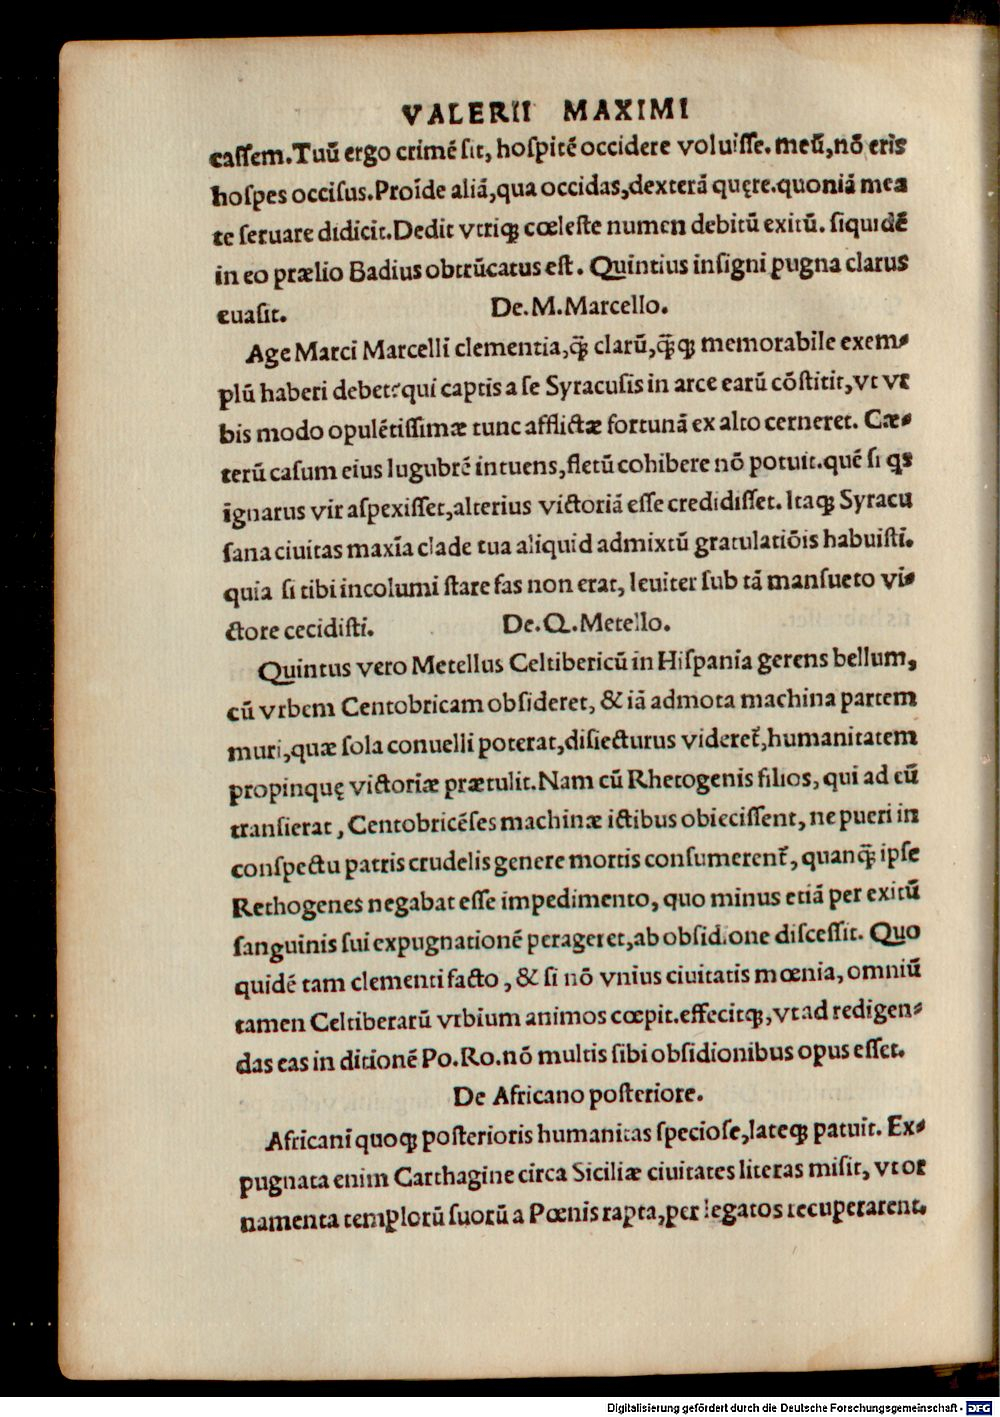 VALERII MAXIMI
caſſem.Tuū ergo crimē ſit, hoſpitē occidere voluiſſe. meū,nō eris
hoſpes occiſus.Proīde aliā,qua occidas,dexterā quęre.quoniā mea
te ſeruare didicit.Dedit vtriqꝫ cœleſte numen debitū exitū. ſiquidē
in eo prælio Badius obtrūcatus eſt. Quintius inſigni pugna clarus
euaſit. De.M.Marcello.
Age Marci Marcelli clementia,q̄ꝫ clarū,q̄ꝫqꝫ memorabile exem-
plū haberi debet?qui captis a ſe Syracuſis in arce earū cōſtitit,vt vr
bis modo opulētiſſimæ tunc afflictæ fortunā ex alto cerneret. Cæ-
terū caſum eius lugubrē intuens,fletū cohibere nō potuit.quē ſi qs
ignarus vir aſpexiſſet,alterius victoriā eſſe credidiſſet. Itaqꝫ Syracu
ſana ciuitas maxīa clade tua aliquid admixtū gratulatiōis habuiſti.
quia ſi tibi incolumi ſtare fas non erat, leuiter ſub tā manſueto vi-
ctore cecidiſti. De.Q.Metello.
Quintus vero Metellus Celtibericū in Hiſpania gerens bellum,
cū vrbem Centobricam obſideret, & iā admota machina partem
muri,quæ ſola conuelli poterat,diſiecturus videret᷑,humanitatem
propinquę victoriæ prætulit.Nam cū Rhetogenis filios, qui ad eū
tranſierat, Centobricēſes machinæ ictibus obieciſſent, ne pueri in
conſpectu patris crudelis genere mortis conſumerent᷑, quanq̄ꝫ ipſe
Rethogenes negabat eſſe impedimento, quo minus etiā per exitū
ſanguinis ſui expugnationē perageret,ab obſidione diſceſſit. Quo
quidē tam clementi facto, & ſi nō vnius ciuitatis mœnia, omniū
tamen Celtiberarū vrbium animos cœpit.effecitqꝫ,vt ad redigen-
das eas in ditionē Po.Ro.nō multis ſibi obſidionibus opus eſſet.
De Africano poſteriore.
Africani quoqꝫ poſterioris humanitas ſpecioſe,lateqꝫ patuit. Ex-
pugnata enim Carthagine circa Siciliæ ciuitates literas miſit, vt or
namenta templorū ſuorū a Pœnis rapta,per legatos recuperarent.
Digitalisierung gefördert durch die Deutsche Forschungsgemeinschaft - DFG